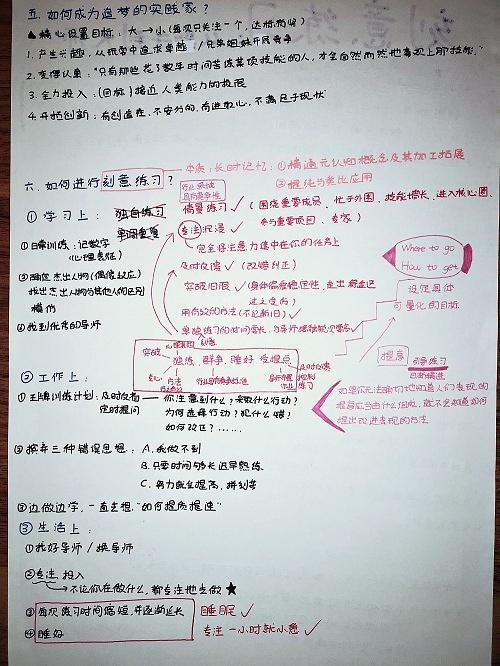 五. 如何成为追梦的实践家?
▲ 核心设置目标: 大→小(每次只关注一个, 达标则收)
1. 产生兴趣, 从玩耍中追求卓越 / 兄弟姐妹开展竞争
2. 变得认真: "只有那些花了数年时间苦练某项技能的人, 才会自然而然地表现上那技能."
3. 全力投入: (目标) 接近人类能力的极限
4. 开拓创新: 有创造在, 不安分的, 有进取心, 不满足于现状
六. 如何进行刻意练习?
本质: 长时记忆: ①精通元认知概念及其加工拓展
② 提练与类比应用
① 学习上:
独自练习
单调重复
情景练习 ✓ (围绕重要场景, 忙于外围, 技能增长, 进入核心圈,
参与重要项目, 专家)
① 日常训练: 记数字
心理表征)
专注沉浸 ✓
完全将注意力集中在你的任务上
② 确定杰出人物(偶像效应)
找出杰出人物与其他人的区别
模仿
及时反馈 ✓ (及时纠正)
Where to go
How to get
设定具体
可量化的目标
③ 找到优秀的导师
用有效的方法 (不论新旧) ✓
突破
独练, 群争, 睡好
及时反馈
提高
刻意练习
② 工作上:
① 王牌训练计划: 及时反省
定时提问
你注意到什么? 采取什么行动?
为何选择行动? 犯什么错?
如何改正? ......
如果你无法确切地知道人们表现的
提高应当由什么组成, 就不会知道如何
提出改进表现的方法
② 摈弃三种错误思想: A. 我做不到
B. 只要时间够长迟早熟练
C. 努力就会提高, 拼刻苦
③ 边做边学, 一直去想"如何提质提速"
③ 生活上:
① 找好导师 / 换导师
② 专注投入
→ 不论你在做什么, 都专注地去做 ★
③ 每次练习时间缩短, 并逐渐延长
④ 睡好
睡眠 ✓
专注一小时就小憩 ✓